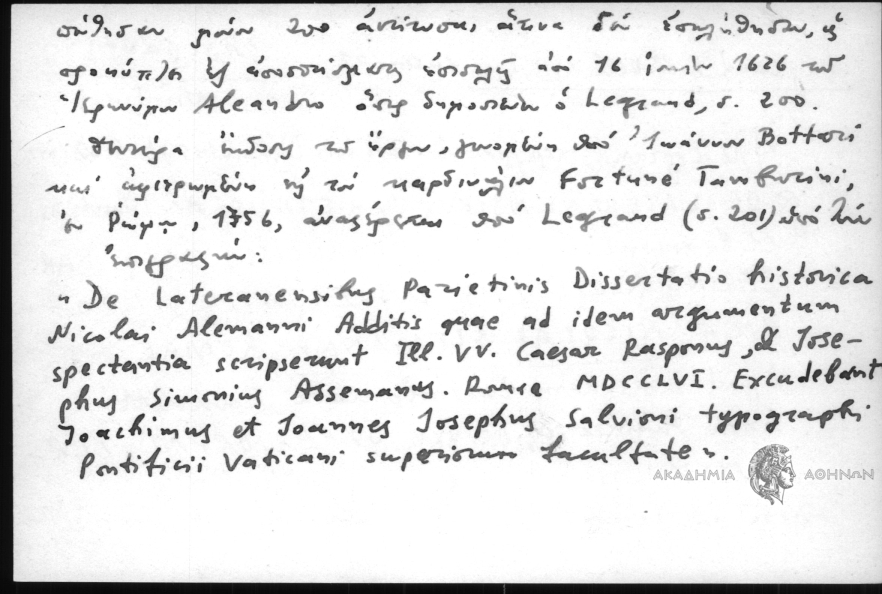 μόνον 200 ἀντίτυπα, ἅτινα δὲν ἐπωλήθησαν, ὡς
προκύπτει ἐξ ἐπιστολῆς ἀπὸ 16 1626 τοῦ
Ἱερωνύμου Aleandro δημοσιεύει ὁ Legrand, σ. 200.
Δευτέρα ἔκδοσις τοῦ ἔργου, γενομένη ὑπὸ Ἰωάννου Bottari
καὶ ἀφιερωμένη εἰς τὸν καρδινάλιον Fortuné Tamburini,
ἐν Ρώμῃ, 1756, ἀναφέρεται ὑπὸ Legrand (σ. 201) ὑπὸ τὴν
ἐπιγραφήν:
"De Lateranensibus Parietinis Dissertatio historica
Nicolai Alemanni Additis quae ad idem argumentum
spectantia scripserunt Ill. VV. Caesar Rasponus, & Jose-
phus Simonius Assemanus. Romae MDCCLVI. Excudebant
Joachimus et Joannes Josephus Salvioni typographi
Pontificii Vaticani superiorum facultate".
ΑΚΑΔΗΜΙΑ ΑΘΗΝΩΝ